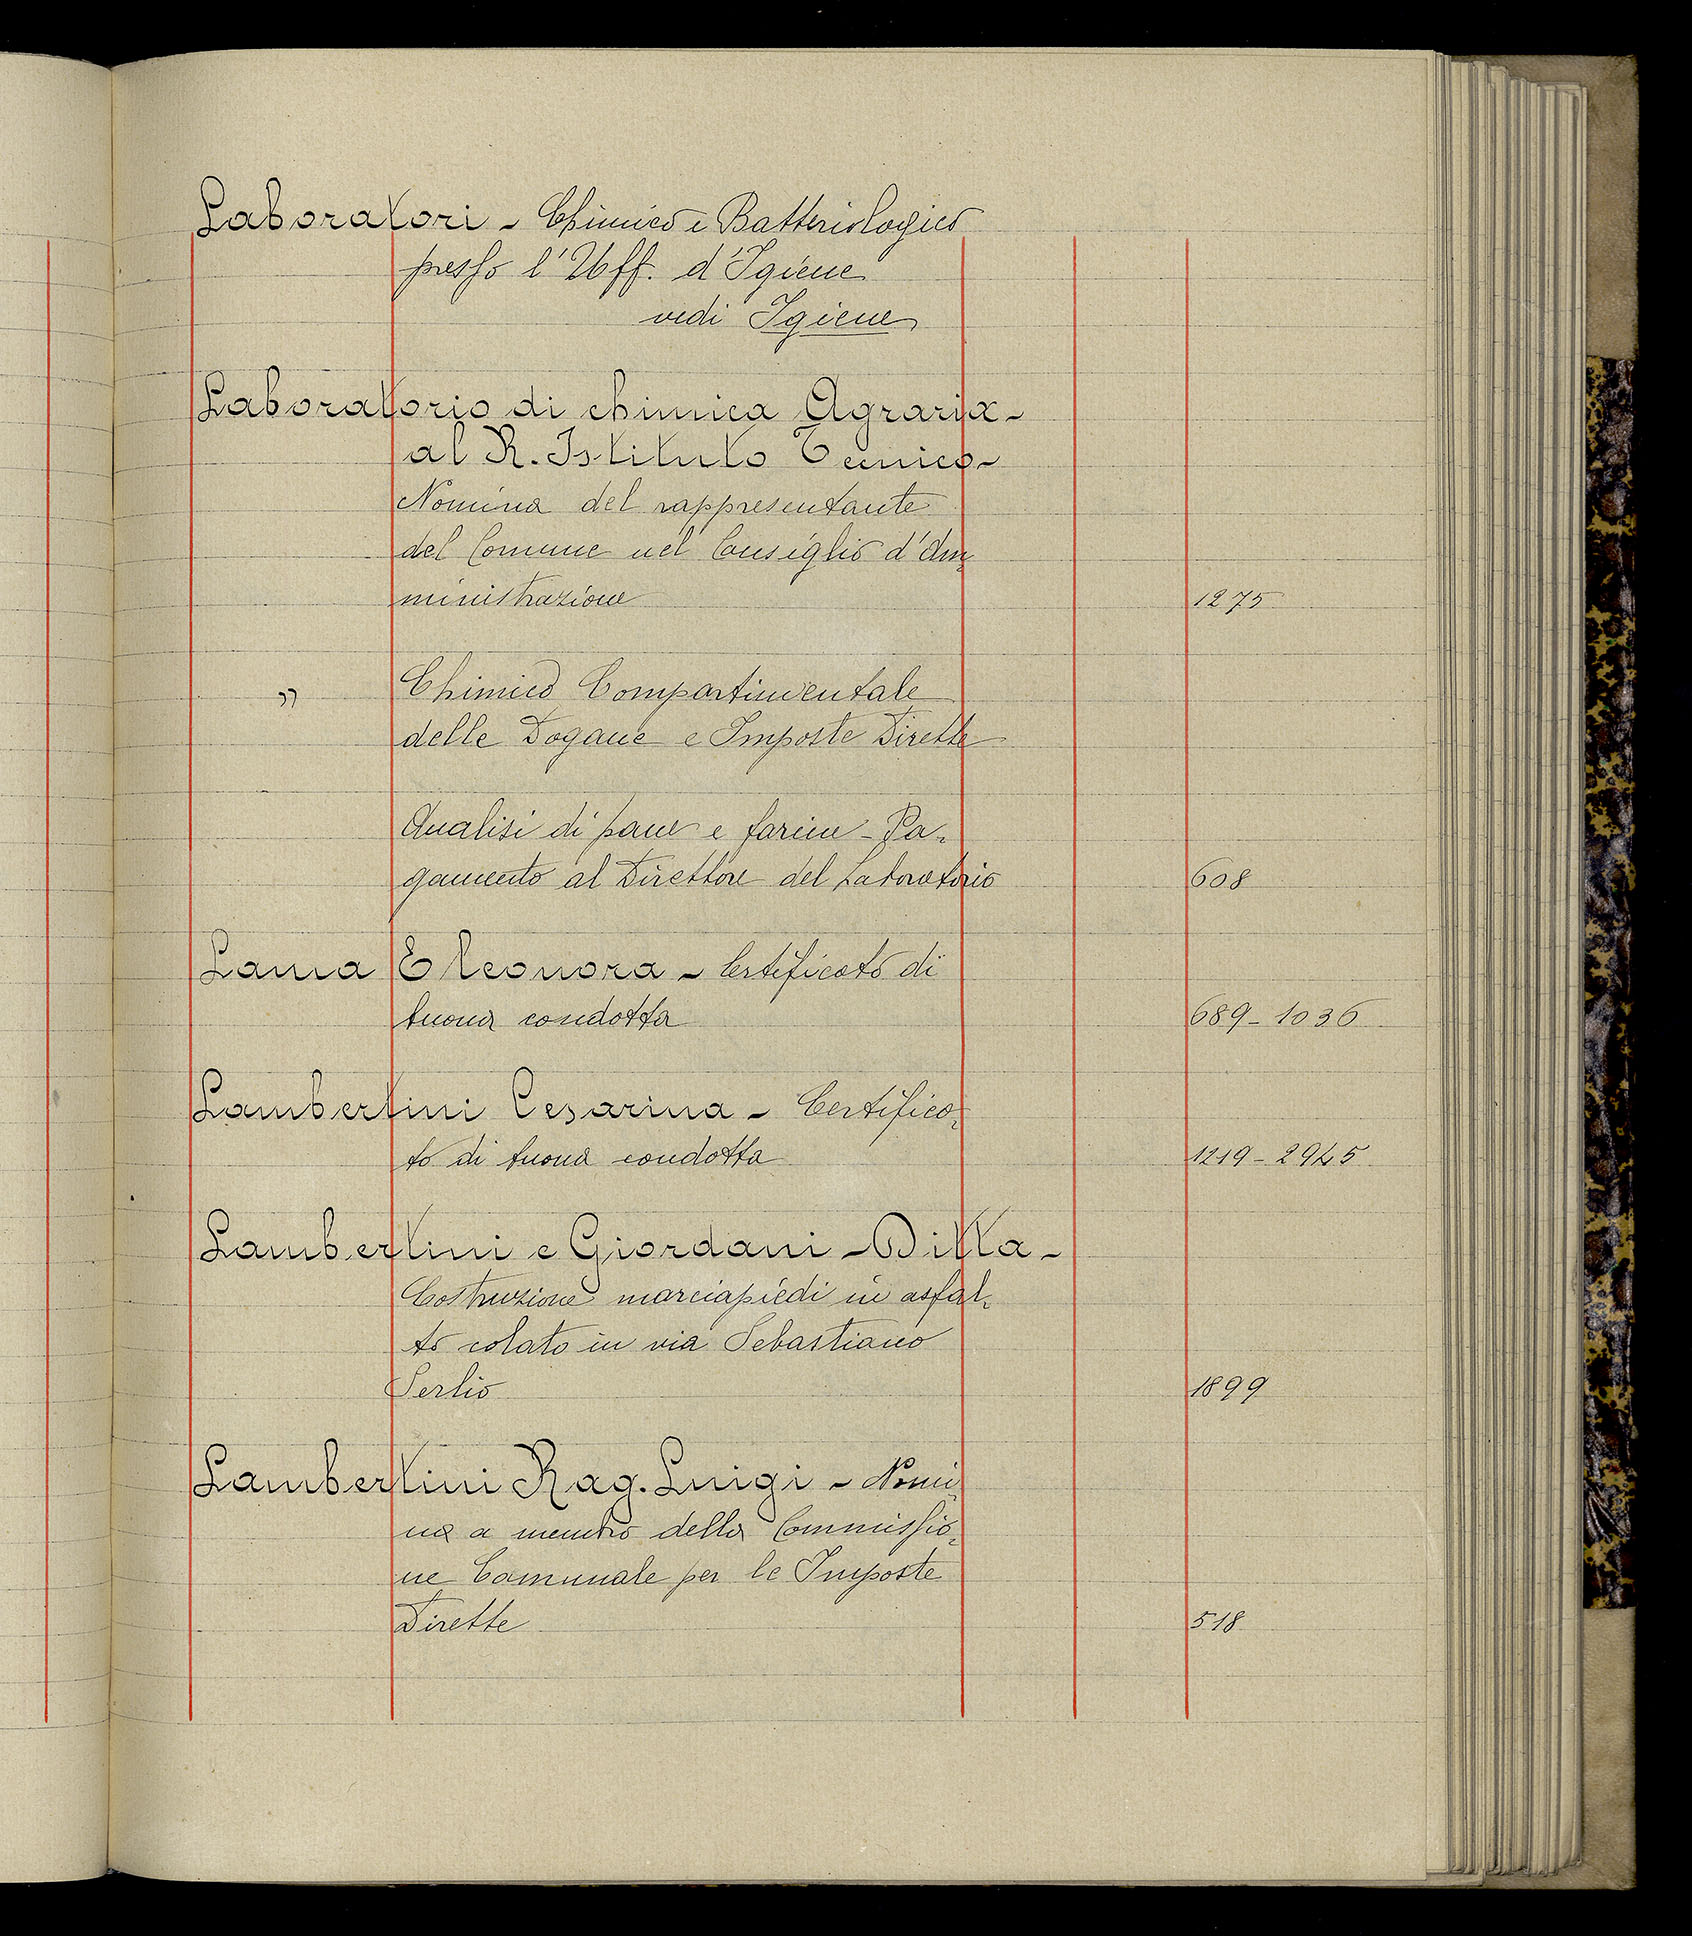 Laboratori - Chimico e Batteriologico
presso l'Uff. d'Igiene
vedi Igiene
Laboratorio di chimica Agraria -
al R. Istituto Tecnico -
Nomina del rappresentante
del Comune nel Consiglio d'Am-
ministrazione 1275
" Chimico Compartimentale
delle Dogane e Imposte Dirette
Analisi di pane e farine - Pa-
gamento al Direttore del Laboratorio 608
Lama Eleonora - Certificato di
buona condotta 689 - 1036
Lambertini Cesarina - Certifica-
to di buona condotta 1219 - 2945
Lambertini e Giordani - Ditta -
Costruzione marciapiedi in asfal-
to colato in via Sebastiano
Serlio 1899
Lambertini Rag. Luigi - Nomi-
na a membro della Commissio-
ne Comunale per le Imposte
Dirette 518